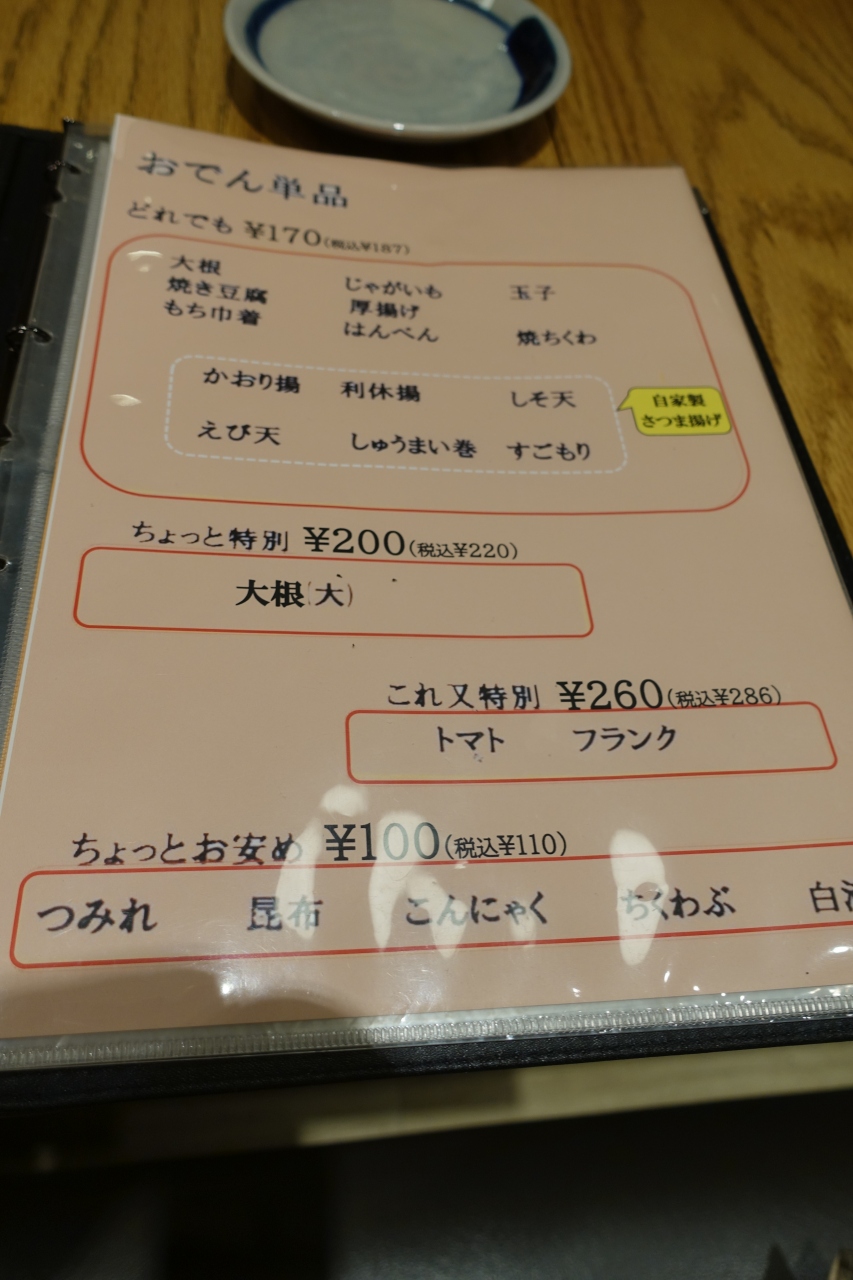 おでん単品
どれでも ¥170(税込¥187)
大根 じゃがいも 玉子
焼き豆腐 厚揚げ
もち巾着 はんぺん 焼ちくわ
かおり揚 利休揚 しそ天
えび天 しゅうまい巻 すごもり
自家製
さつま揚げ
ちょっと特別 ¥200(税込¥220)
大根(大)
これ又特別 ¥260(税込¥286)
トマト フランク
ちょっとお安め ¥100(税込¥110)
つみれ 昆布 こんにゃく ちくわぶ 白